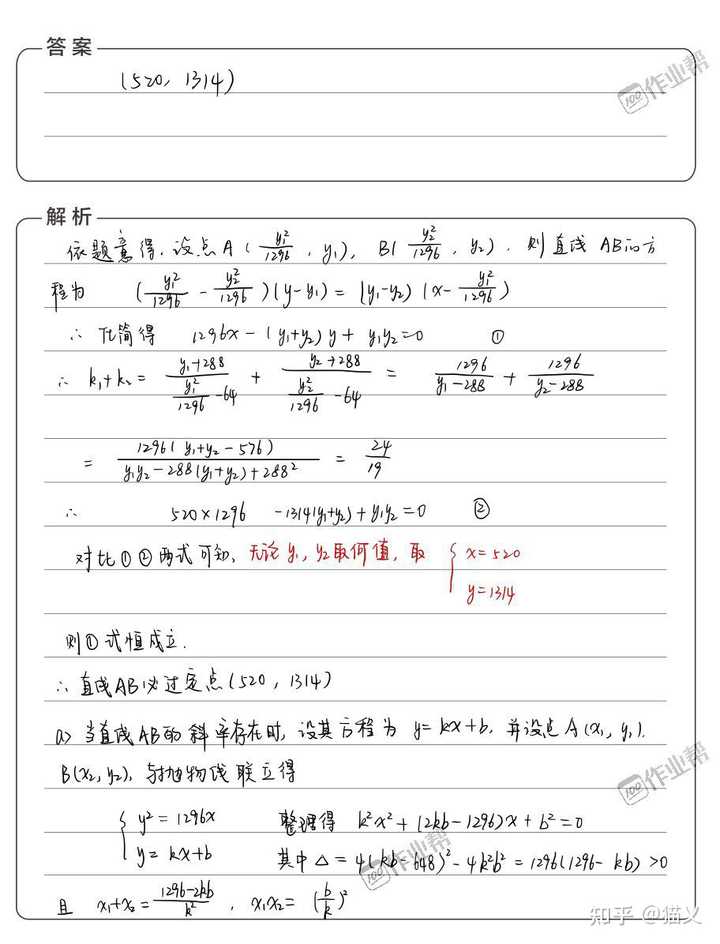 答案
(520, 1314)
100 作业帮
解析
依题意得, 设点A ( y₁²/1296 , y₁), B( y₂²/1296 , y₂). 则直线 AB的方
程为 ( y₁²/1296 - y₂²/1296 )(y-y₁) = (y₁-y₂) (x- y₁²/1296 )
∴ 化简得 1296x-(y₁+y₂)y+ y₁y₂=0 ①
∴ k₁+k₂= (y₁+288)/(y₁²/1296 -64) + (y₂+288)/(y₂²/1296 -64) = 1296/(y₁-288) + 1296/(y₂-288)
= 1296( y₁+y₂-576)/(y₁y₂-288(y₁+y₂)+288²) = 24/19
∴ 520×1296 -1314(y₁+y₂)+y₁y₂=0 ②
对比①②两式可知, 无论y₁, y₂取何值, 取 { x=520
y=1314
则①式恒成立.
∴ 直线AB必过定点(520, 1314)
a> 当直线AB的斜率存在时, 设其方程为 y=kx+b, 并设点A(x₁, y₁),
B(x₂, y₂), 与抛物线联立得
100 作业帮
{ y²=1296x 整理得 k²x²+(2kb-1296)x+b²=0
y=kx+b 其中△=4(kb-648)²-4k²b²=1296(1296- kb)>0
100 作业帮
且 x₁+x₂= (1296-2kb)/k² , x₁x₂= (b/k)²
知乎 @猫义